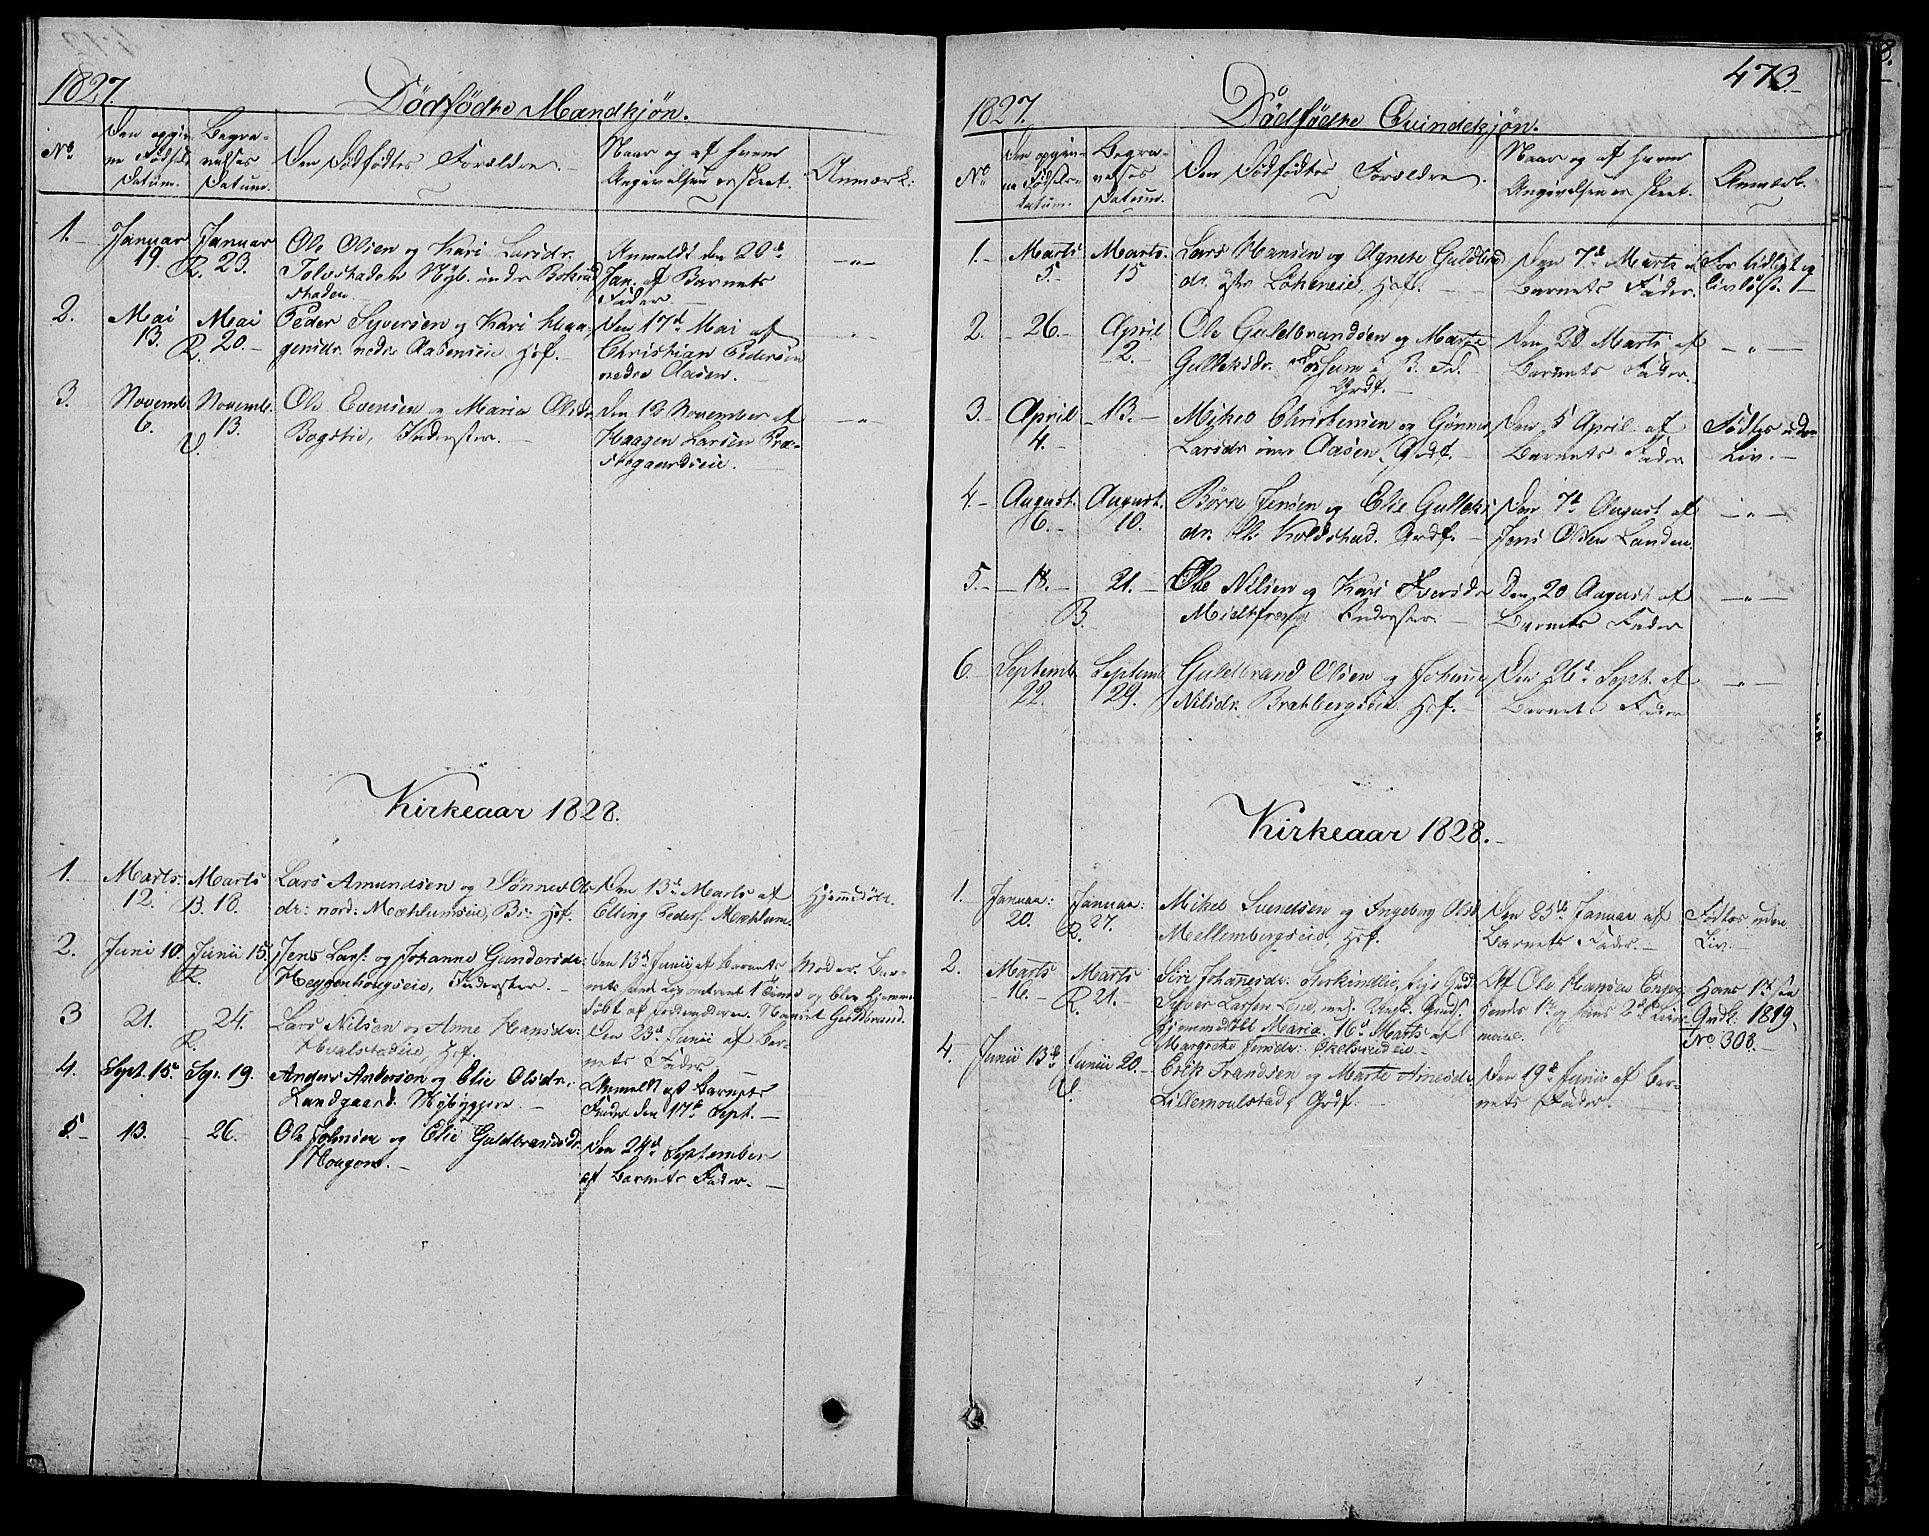 1827.
Dødfødte Mandkjøn.
No
Den opgiv-
ne Fødsels
Datum.
Begra-
velses
Datum.
Den Dødfødtes Forældre.
Naar og af hvem
Angivelsen er skeet.
Anmærk:
1.
Januar
19.
Januar
R. 23.
Ole Olsen og Kari Larsdr.
Nyb. under
Anmeldt den 20de
Jan. af Barnets
Fader.
2.
Mai
13.
Mai
R. 20.
Peder Syversen og Kari Haa-
gensdr. nedre Aasenseie Hof.
Den 17d Mai af
Christian Pedersen
nedre Aasen.
3.
Novemb.
6.
Novemb.
13.
Ole Evensen og Maria Olsdr.
Bogstie, Inderster.
Den 13 November af
Haagen Larsen Præ-
stegaardseie.
Kirkeaar 1828.
1.
Marts.
12.
Marts
B. 18.
Lars Amundsen og Sønnev Ols
dr: nord: Mæhlumseie, Br: Hof.
Den 13d Marts af
Elling Peders. Mæhlum.
Hjemmedøbt.
2.
Juni 10.
Junii 15.
R.
Jens Lars: og Johanne Gundersdr:
Heggenhougseie, Inderster.
Den 13d Junii af Barnets Moder. Bar-
og blev hjemme
døbt af Navnet Guldbrand.
3
21.
24.
R.
Lars Nilsen og Anne Hansdr:
Hvalstadeie, Hof.
Den 23d Junii af Bar-
nets Fader.
4.
Sept. 15.
Sep. 19.
Anders Andersen og Elie Olsdr.
Landgaard. Nybyggere.
Anmeldt af Barnets
Fader den 17d Sept.
5.
13.
26.
Ole Johnsen og Elie Guldbrandsdr.
Hougen.
Den 24d September
af Barnets Fader.
473.
1827.
Dødfødte Qvindekjøn.
No
Den opgiv-
ne Fødsels-
datum.
Begra-
velses
Datum.
Den Dødfødtes Forældre.
Naar og af hvem
Angivelsen er skeet.
Anmærk.
1.
Marts
5.
Marts.
15
Lars Hansen og Agnete Guldbrand
dr. Hof.
Den 7d Marts af
Barnets Fader.
For tidligt og
livløst.
2.
26.
April
2.
Ole Guldbrandsen og Marte
Gulleksdr. Fossum i 3. Fd.
Grdf.
Den 28 Marts af
Barnets Fader.
3.
April
4.
13.
Mikel Christensen og Gønner
Larsdr. øvre Aasen, Grdf.
Den 5 April af
Barnets Fader
Fødtes uden
Liv.
4.
August.
6.
August.
10.
Børre Jensen og Elie Gulleks
dr. Koldstad. Grdf.
Den 7d August af
Jens Olsen Landen.
5.
18.
21.
B.
Ole Nilsen og Kari Iversdr
Inderster.
Den 20 August af
Barnets Fader
6.
Septemb.
22.
Septemb
29.
Guldbrand Olsen og Johanne
Nilsdr. Brækbergseie Hof.
Den 26d Sept. af
Barnets Fader
Kirkeaar 1828.
1.
Januar:
20.
Januar:
R. 27.
Mikel Svendsen og Ingeborg Olsd
Mellembergseie, Hof.
Den 25de Januar af
Barnets Fader.
Fødtes uden
Liv.
2.
Marts
16.
Marts
R. 21.
Siri Johanesdr. Sterkindlie,
Syver Larsen Lene, Grdf.
Hjemmedøbt Maria. 16d Marts af
Margrethe Jensdr: Ekelsrudeie.
Af Ole Hansen
hendes 1te og hans 2d Leier-
maal.
Hans 1te see
Grdb. 1819,
No 308.
4.
Junii 13de
Junii 20.
Erik Frandsen og Marte Arnesdr.
Lillemoulstad, Grdf.
Den 19d Junii af Bar-
nets Fader.